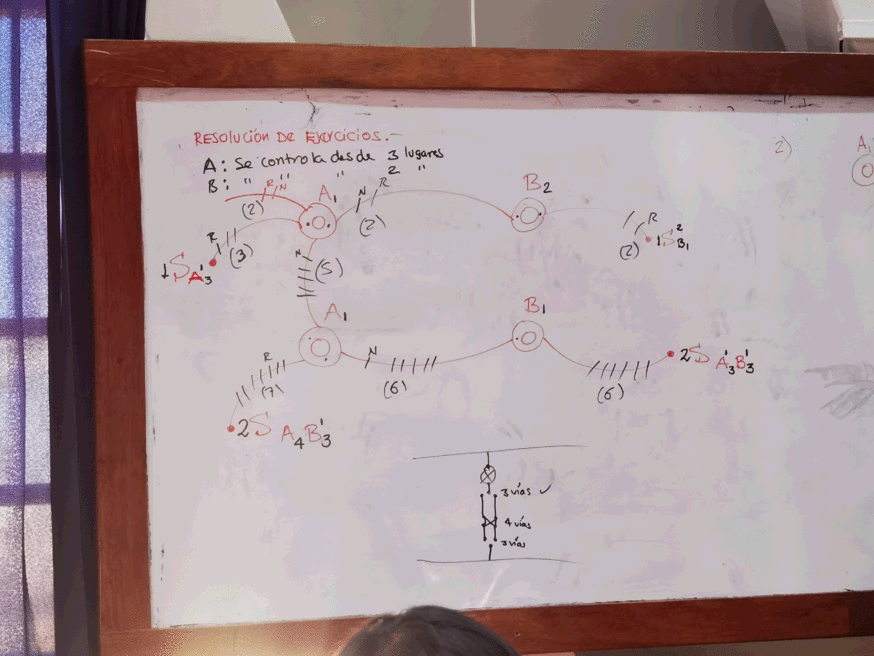 RESOLUCIÓN DE EJERCICIOS.-
A: Se controla desde 3 lugares
B: " " " 2 "
2)
R N
A1
N R
B2
A1
(2)
(2)
R
(3)
1S A3'
N
(5)
R
(2)
1S B1 2
A1
B1
R
(7)
N
(6)
(6)
2S A3' B3'
2S A4 B3'
3 vías ✓
4 vías
3 vías